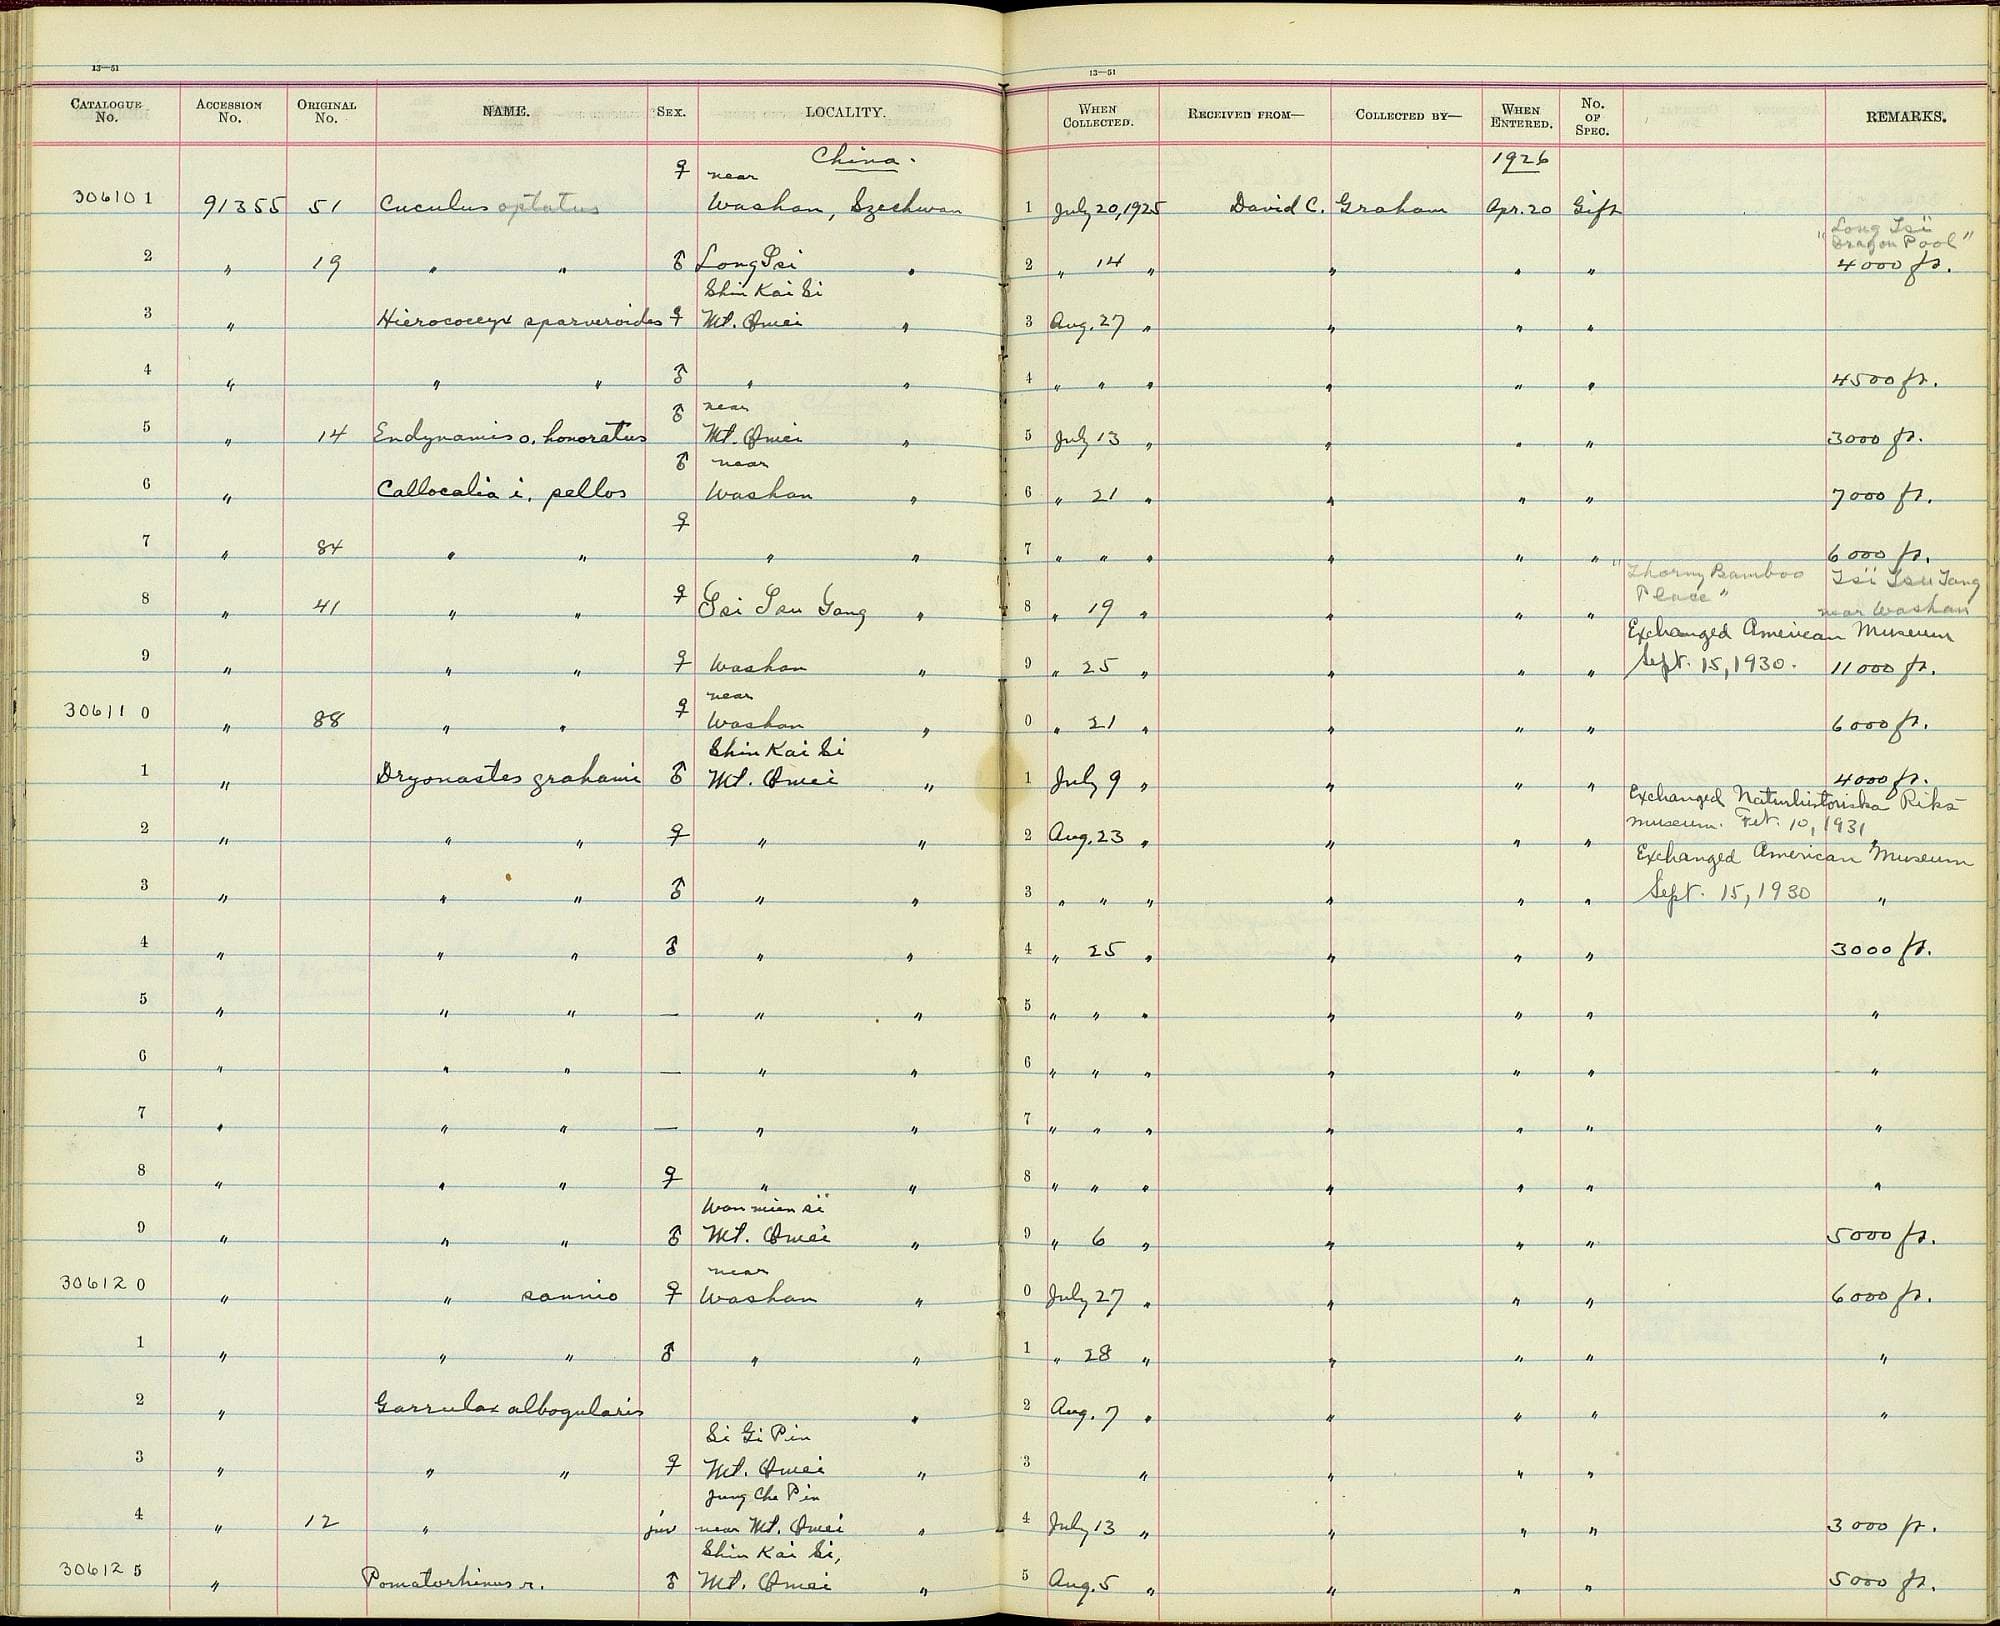 13—51
13—51
CATALOGUE No. ACCESSION No. ORIGINAL No. NAME. SEX. LOCALITY. WHEN COLLECTED. RECEIVED FROM— COLLECTED BY— WHEN ENTERED. No. OF SPEC. REMARKS.
China. 1926
♀ near
306101 91355 51 Cuculus optatus Washan, Szechwan 1 July 20, 1925 David C. Graham Apr. 20 Gift
"Long Tsï
Dragon Pool"
2 " 19 " " ♂ Long Tsi " 2 " 14 " " " " 4000 ft.
Shin Kai Si
3 " Hierococcyx sparveroides ♀ Mt. Omei " 3 Aug. 27 " " " "
4 " " " ♂ " " 4 " " " " " " 4500 ft.
♂ near
5 " 14 Endynamis o. honoratus Mt. Omei " 5 July 13 " " " " 3000 ft.
♂ near
6 " Callocalia i. pellos Washan " 6 " 21 " " " " 7000 ft.
♀
7 " 84 " " " " 7 " " " " " " 6000 ft.
"Thorny Bamboo Tsï Tsu Tang
Place" near Washan
8 " 41 " " ♀ Tsi Tsu Gang " 8 " 19 " " " "
Exchanged American Museum
9 " " " ♀ Washan " 9 " 25 " " " " Sept. 15, 1930. 11000 ft.
near
306110 " 88 " " ♀ Washan " 0 " 21 " " " " 6000 ft.
Shin Kai Si
1 " Dryonastes grahami ♂ Mt. Omei " 1 July 9 " " " " 4000 ft.
Exchanged Naturhistoriska Riks
museum. Feb. 10, 1931
2 " " " ♀ " " 2 Aug. 23 " " " " "
Exchanged American Museum
3 " " " ♂ " " 3 " " " " " " Sept. 15, 1930 "
4 " " " ♂ " " 4 " 25 " " " " 3000 ft.
5 " " " — " " 5 " " " " " " "
6 " " " — " " 6 " " " " " " "
7 " " " — " " 7 " " " " " " "
8 " " " ♀ " " 8 " " " " " " "
Wan mien si
9 " " " ♂ Mt. Omei " 9 " 6 " " " " 5000 ft.
near
306120 " " sannio ♀ Washan " 0 July 27 " " " " 6000 ft.
1 " " " ♂ " " 1 " 28 " " " " "
2 " Garrulax albogularis " 2 Aug. 7 " " " " "
Si Gi Pin
3 " " " ♀ Mt. Omei " 3 " " " "
Jung Che Pin
4 " 12 " juv near Mt. Omei " 4 July 13 " " " " 3000 ft.
Shin Kai Si,
306125 " Pomatorhinus r. ♂ Mt. Omei " 5 Aug. 5 " " " " 5000 ft.